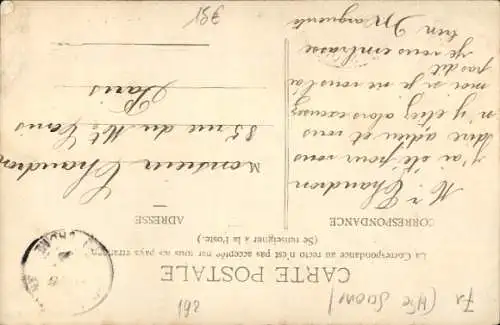 CARTE POSTALE
La Correspondance au recto n'est pas acceptée par tous les pays étrangers
(Se renseigner à la Poste.)
CORRESPONDANCE
ADRESSE
Mr Chaudron
j'ai été pour vous
dire adieu et vous
n'y étiez alors excusez
moi si je ne vous l'ai
pas dit
je vous embrasse
bien Marguerite
Monsieur Chaudron
85 rue du Mt Cenis
Paris
192
71 (Hse Saone)